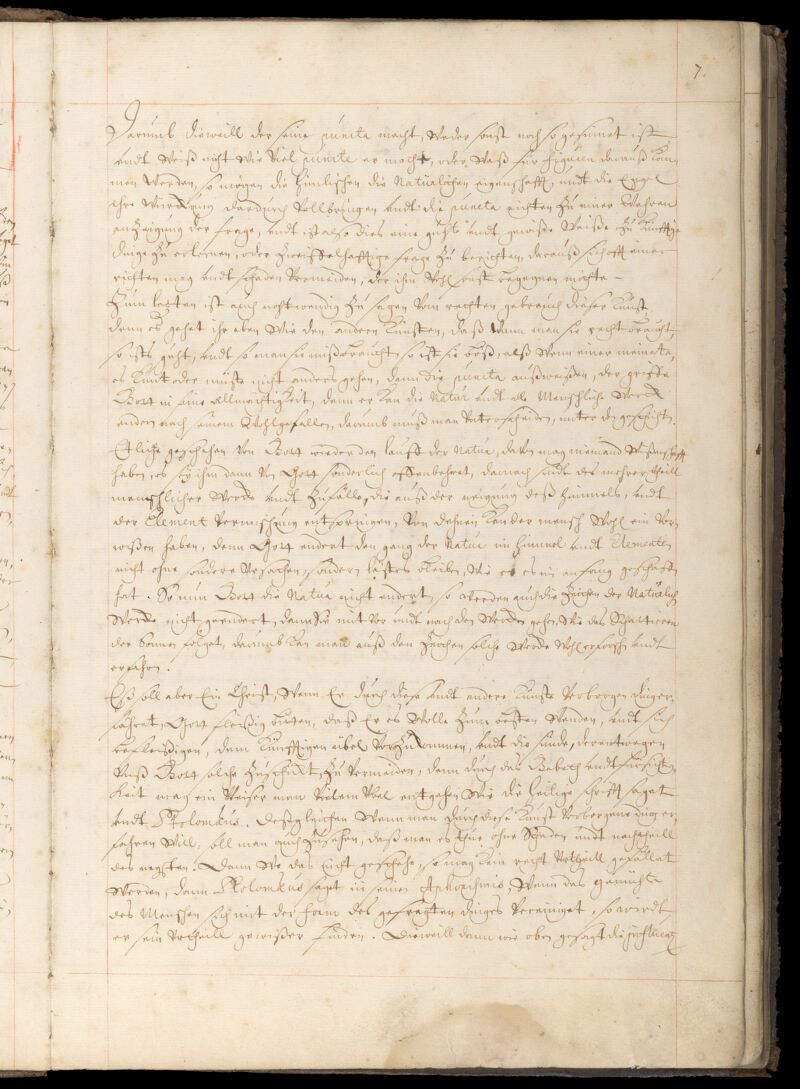 7.
Darumb dieweill der seine puncta macht, weder sonst noch so gesinnet ist
undt weiß nicht wie viel puncta er macht, oder waß für figuren darauß kom
men werden, so mögen die himlischen die Natürlichen eigenschafft, undt die Engel
ihre würckung dardurch vollbringen undt die puncta richten zu einer wahren
anzeigung der frage, undt ist also dies eine guhte undt gewiße weiße zu künfftige
dinge zu erlernen, oder zweiffelhafftige frage zu berichten, darauß sich offt einer
richten mag undt schaden vermeiden, der ihm wohl sonst begegnen möchte –
Zum letzten ist auch nothwendig zu sagen vom rechten gebrauch dieser Kunst,
denn es gehet ihr eben wie den andern Künsten, daß wann man sie recht braucht,
so ists guht, undt so man sie mißbraucht so ist sie böß, alß wenn einer meinete,
es könt oder müste nicht anders gehen, denn die puncta außweißen, der greiffe
Gott in seine Allmächtigkeit, denn er kan die Natur undt alle Menschliche werck
endern nach seinem Wohlgefallen, darumb muß man unterscheiden, unter den geschichten.
Etliche geschehen von Gott wieder den lauff der Natur, davon mag niemand wißenschafft
haben, es sey ihm dann von Gott sonderlich offenbahret, darnach sindt des mehrer theill
menschlicher wercke undt Zufälle, die auß der neigung deß himmels, undt
der Element vermischung entspringen, von dehnen kan der mensch wohl ein vor
wißen haben, denn Gott endert den gang der Natur im himmel undt Elementen
nicht ohne sondere Ursachen, sondern lest es bleiben, wie er es im anfang geschaffen
hat. So nun Gott die Natur nicht endert, so werden auch die Zeichen der Natürlichen
Wercke nicht geendert, dann sie mit vor undt nach den Wercken gehen, wie das Schatten
der Sonnen folget, darumb kan man auß den Zeichen solche wercke wohl erforschen undt
erfahren.
Eß soll aber Ein Christ, wenn Er durch diese undt andere Künste verborgen dinge er
fähret, Gott fleißig bitten, daß Er es wolle zum besten wenden, undt sich
befleißigen, dem Künfftigen übel vorzukommen, undt die sünde, derentwegen
unß Gott solche zuschickt, zu vermeiden, denn durch das Gebeth undt fürsichtig
keit mag ein Weiser man vielem übel entgehen, wie die heilige schrifft saget
undt Ptolomæus. Deßgleichen wenn man durch diese Kunst verborgene ding er
fahren will, soll man auch zusehen, daß man es thue ohne Schaden undt nachtheill
des negsten. Dann wo das nicht geschehe, so mag kein recht Urtheill gefället
werden, denn Ptolomæus saget in seinen, wenn das gemühte
des Menschen sich mit der form des gefragten dinges vereiniget, so wirdt
er sein Urtheill gewißer finden. Dieweill dann wie oben gesagt die